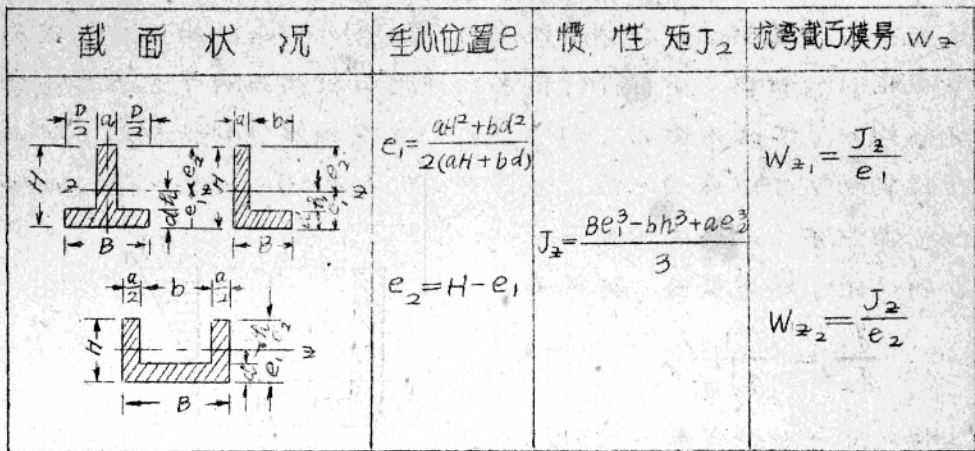 截面状况 重心位置e 惯性矩J_z 抗弯截面模量 W_z
D/2 a D/2 a b
H z d h e_1 e_2 z H d h e_1 e_2 z
B B
a/2 b a/2
H d h e_1 e_2 z
B
e_1=(aH^2+bd^2)/(2(aH+bd))
e_2=H-e_1
J_z=(Be_1^3-bh^3+ae_2^3)/3
W_{z_1}=J_z/e_1
W_{z_2}=J_z/e_2